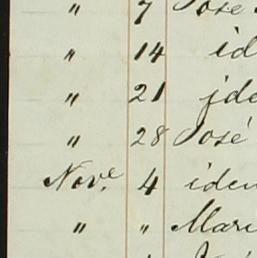 " 7 José
" 14 id
" 21 jde
" 28 José
Nov.e 4 iden
" " Mari